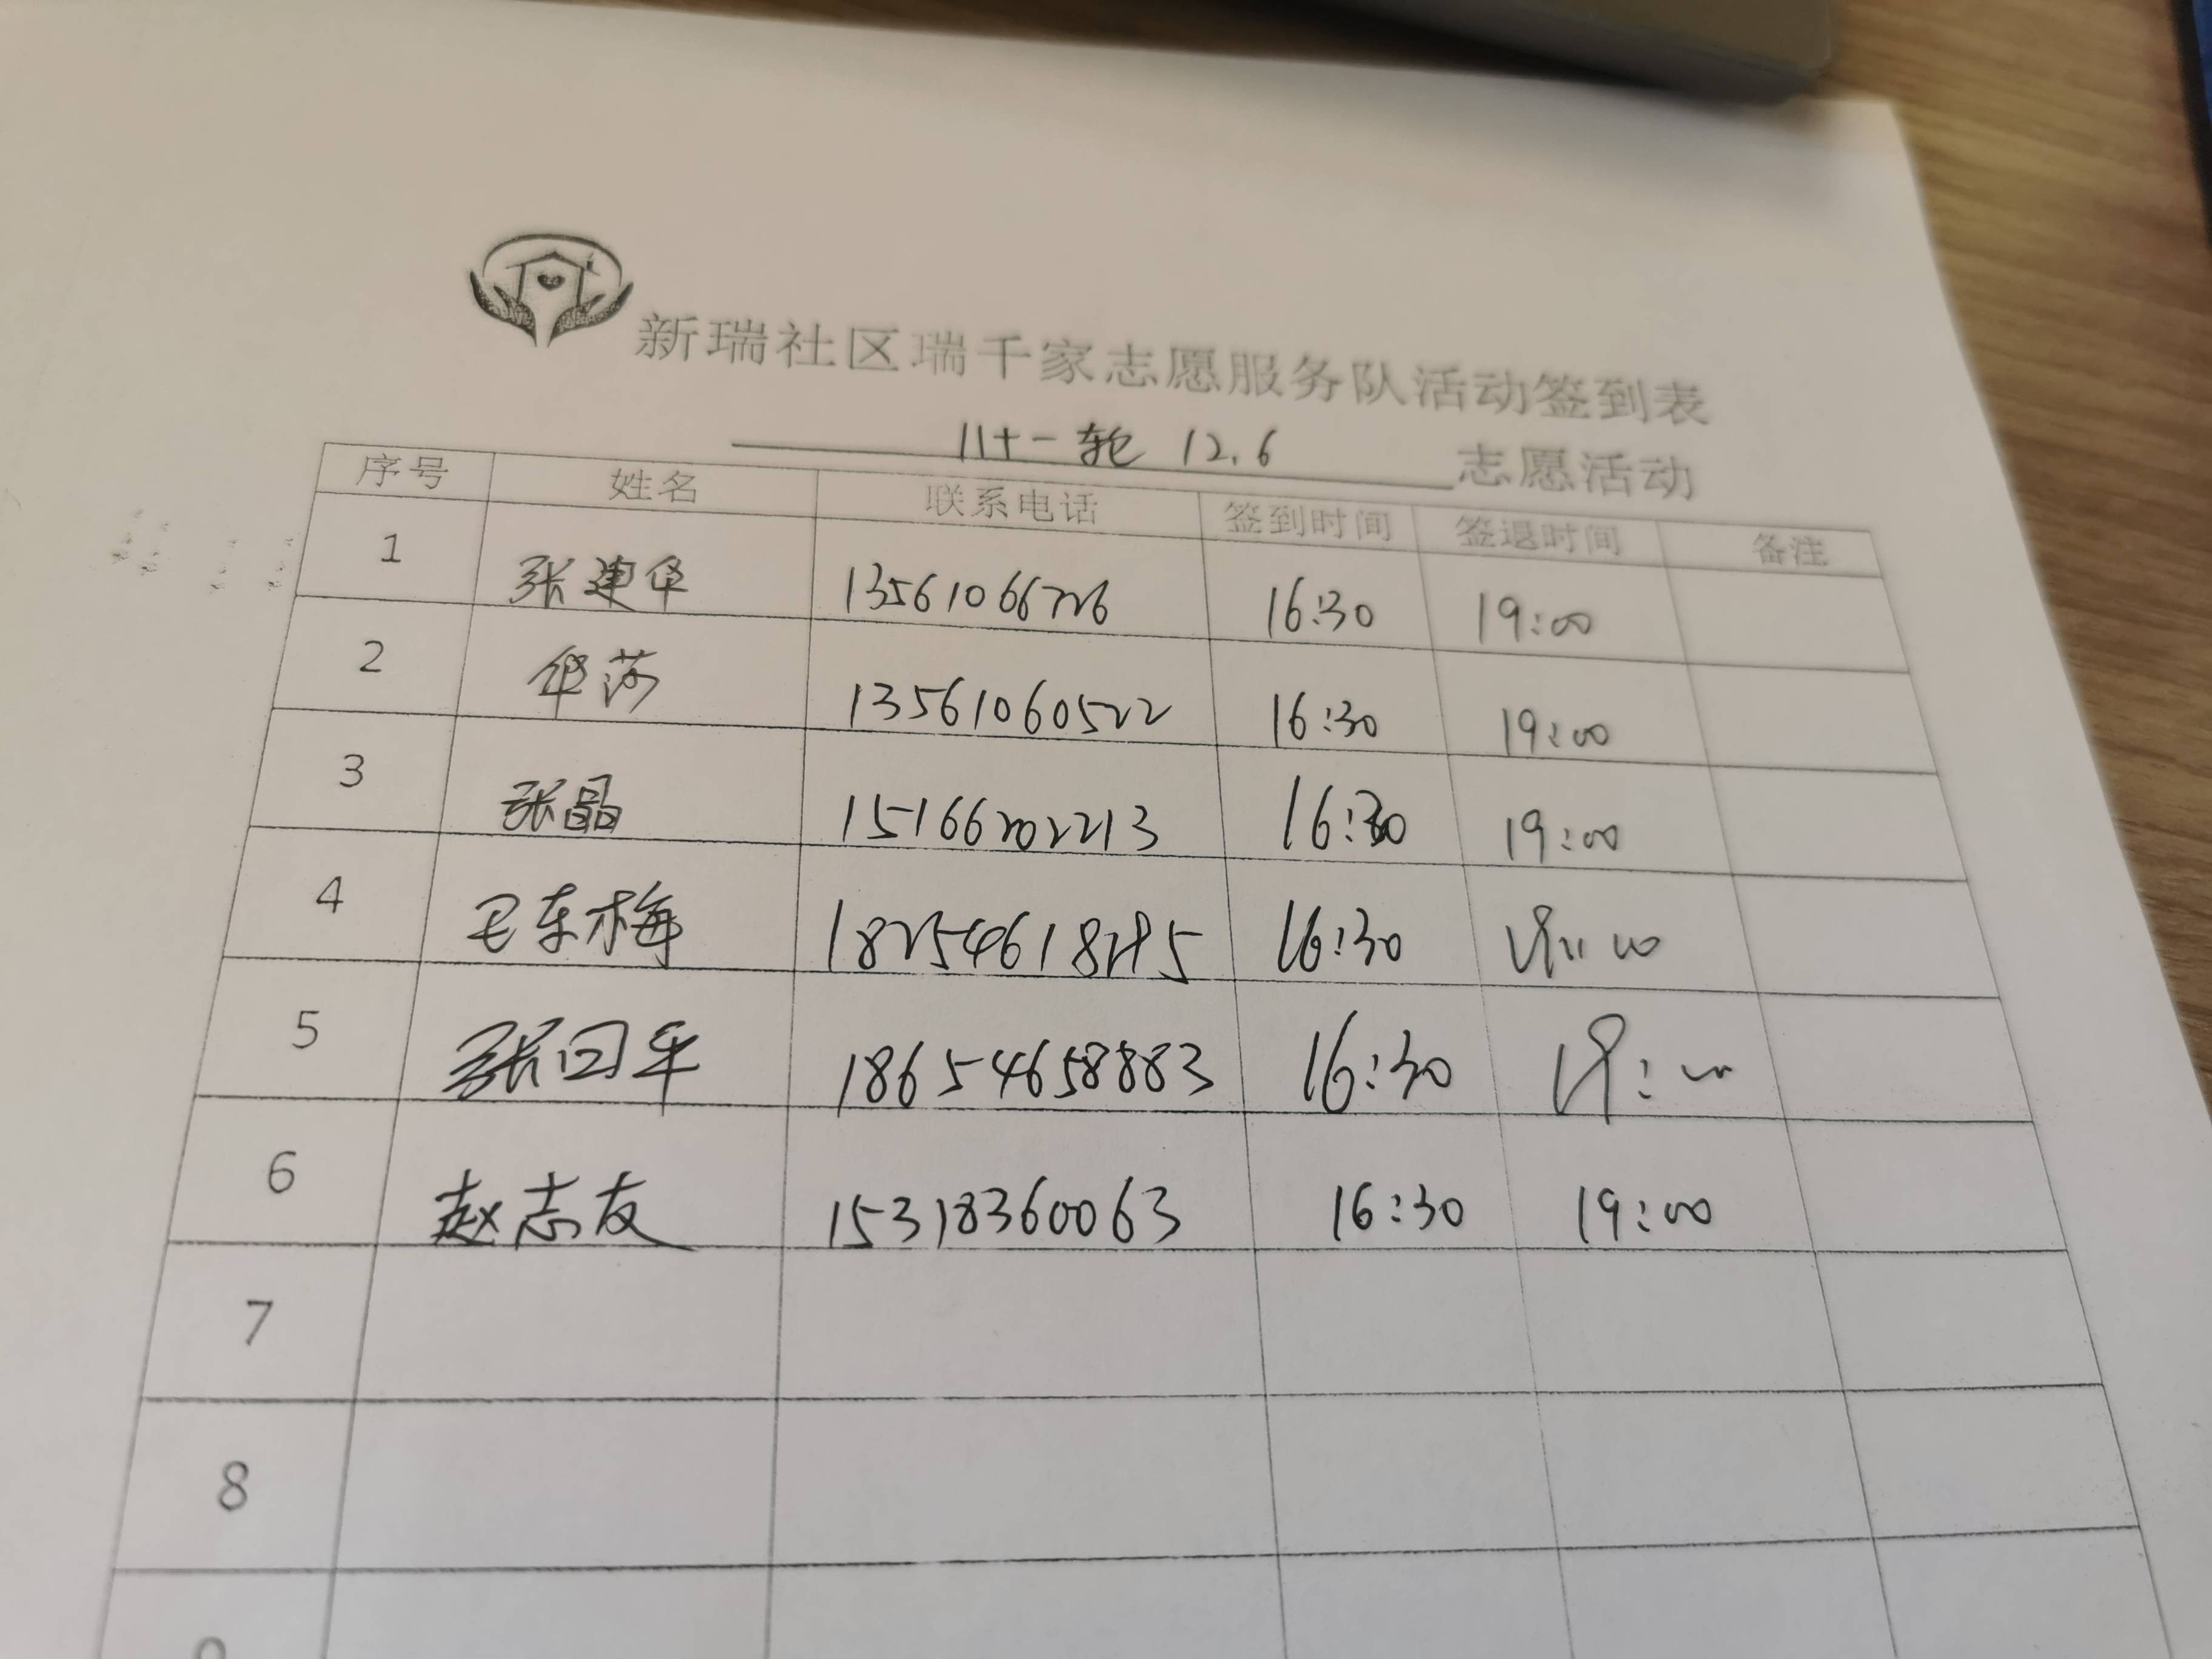 新瑞社区瑞千家志愿服务队活动签到表
11十一轮 12.6 志愿活动
序号 姓名 联系电话 签到时间 签退时间 备注
1 张建华 13561066726 16:30 19:00
2 华莎 13561060522 16:30 19:00
3 张晶 15166202213 16:30 19:00
4 梅 16:30 19:00
5 张回军 18654658883 16:30 19:00
6 赵志友 15318360063 16:30 19:00
7
8